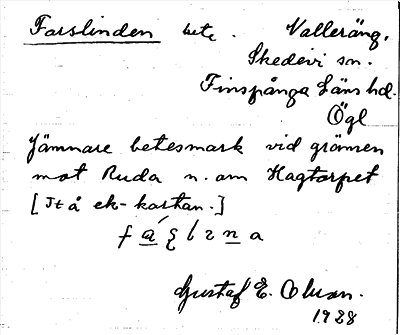 Farslinden bete. Valleräng,
Skedevi sn.
Finspånga läns hd.
Ögl
Jämnare betesmark vid gränsen
mot Ruda n. om Hagtorpet
[Tt å ek-kartan.]
Gustaf E. Olson.
1928